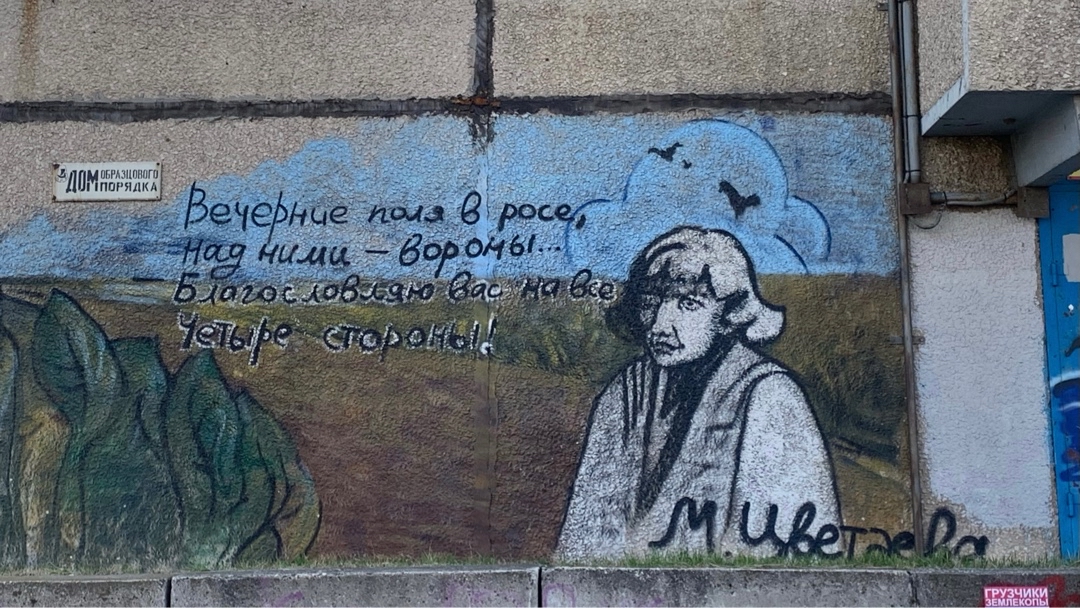 ДОМ ОБРАЗЦОВОГО
ПОРЯДКА
Вечерние поля в росе,
над ними – вороны...
Благословляю вас на все
Четыре стороны!
М. Цветаева
ГРУЗЧИКИ
ЗЕМЛЕКОПЫ